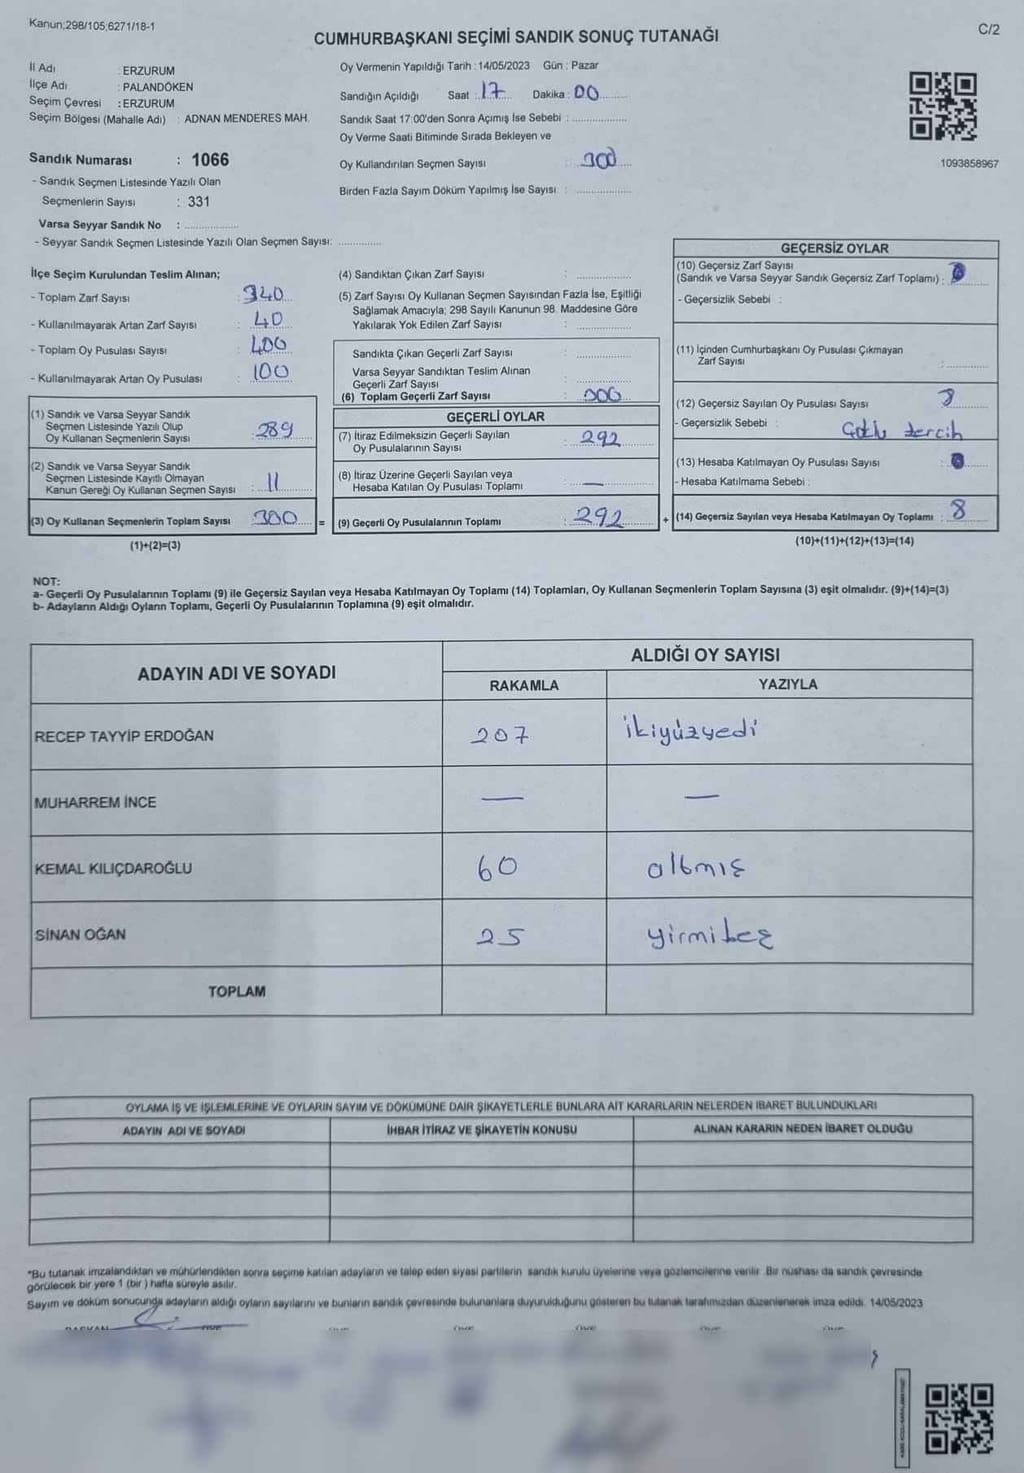 Kanun;298/105;6271/18-1
C/2
CUMHURBAŞKANI SEÇİMİ SANDIK SONUÇ TUTANAĞI
İl Adı : ERZURUM
İlçe Adı : PALANDÖKEN
Seçim Çevresi : ERZURUM
Seçim Bölgesi (Mahalle Adı) : ADNAN MENDERES MAH.
Sandık Numarası : 1066
- Sandık Seçmen Listesinde Yazılı Olan
Seçmenlerin Sayısı : 331
Varsa Seyyar Sandık No : ................
- Seyyar Sandık Seçmen Listesinde Yazılı Olan Seçmen Sayısı: .............
Oy Vermenin Yapıldığı Tarih : 14/05/2023 Gün : Pazar
Sandığın Açıldığı Saat : 17 Dakika : 00
Sandık Saat 17:00'den Sonra Açımış İse Sebebi : ................
Oy Verme Saati Bitiminde Sırada Bekleyen ve
Oy Kullandırılan Seçmen Sayısı : 300
Birden Fazla Sayım Döküm Yapılmış İse Sayısı : ................
1093858967
İlçe Seçim Kurulundan Teslim Alınan;
- Toplam Zarf Sayısı : 340
- Kullanılmayarak Artan Zarf Sayısı : 40
- Toplam Oy Pusulası Sayısı : 400
- Kullanılmayarak Artan Oy Pusulası : 100
(1) Sandık ve Varsa Seyyar Sandık
Seçmen Listesinde Yazılı Olup
Oy Kullanan Seçmenlerin Sayısı : 289
(2) Sandık ve Varsa Seyyar Sandık
Seçmen Listesinde Kayıtlı Olmayan
Kanun Gereği Oy Kullanan Seçmen Sayısı : 11
(3) Oy Kullanan Seçmenlerin Toplam Sayısı : 300 =
(1)+(2)=(3)
(4) Sandıktan Çıkan Zarf Sayısı : ................
(5) Zarf Sayısı Oy Kullanan Seçmen Sayısından Fazla İse, Eşitliği
Sağlamak Amacıyla; 298 Sayılı Kanunun 98. Maddesine Göre
Yakılarak Yok Edilen Zarf Sayısı : ................
Sandıkta Çıkan Geçerli Zarf Sayısı : ................
Varsa Seyyar Sandıktan Teslim Alınan
Geçerli Zarf Sayısı : ................
(6) Toplam Geçerli Zarf Sayısı : 300
GEÇERLİ OYLAR
(7) İtiraz Edilmeksizin Geçerli Sayılan
Oy Pusulalarının Sayısı : 292
(8) İtiraz Üzerine Geçerli Sayılan veya
Hesaba Katılan Oy Pusulası Toplamı : —
(9) Geçerli Oy Pusulalarının Toplamı : 292 +
GEÇERSİZ OYLAR
(10) Geçersiz Zarf Sayısı
(Sandık ve Varsa Seyyar Sandık Geçersiz Zarf Toplamı) :
- Geçersizlik Sebebi :
(11) İçinden Cumhurbaşkanı Oy Pusulası Çıkmayan
Zarf Sayısı : ................
(12) Geçersiz Sayılan Oy Pusulası Sayısı 8
- Geçersizlik Sebebi : tercih
(13) Hesaba Katılmayan Oy Pusulası Sayısı :
- Hesaba Katılmama Sebebi :
(14) Geçersiz Sayılan veya Hesaba Katılmayan Oy Toplamı : 8
(10)+(11)+(12)+(13)=(14)
NOT:
a- Geçerli Oy Pusulalarının Toplamı (9) ile Geçersiz Sayılan veya Hesaba Katılmayan Oy Toplamı (14) Toplamları, Oy Kullanan Seçmenlerin Toplam Sayısına (3) eşit olmalıdır. (9)+(14)=(3)
b- Adayların Aldığı Oyların Toplamı, Geçerli Oy Pusulalarının Toplamına (9) eşit olmalıdır.
ADAYIN ADI VE SOYADI
ALDIĞI OY SAYISI
RAKAMLA YAZIYLA
RECEP TAYYİP ERDOĞAN 207 ikiyüzyedi
MUHARREM İNCE — —
KEMAL KILIÇDAROĞLU 60 altmış
SİNAN OĞAN 25 yirmibeş
TOPLAM
OYLAMA İŞ VE İŞLEMLERİNE VE OYLARIN SAYIM VE DÖKÜMÜNE DAİR ŞİKAYETLERLE BUNLARA AİT KARARLARIN NELERDEN İBARET BULUNDUKLARI
ADAYIN ADI VE SOYADI İHBAR İTİRAZ VE ŞİKAYETİN KONUSU ALINAN KARARIN NEDEN İBARET OLDUĞU
*Bu tutanak imzalandıktan ve mühürlendikten sonra seçime katılan adayların ve talep eden siyasi partilerin sandık kurulu üyelerine veya gözlemcilerine verilir. Bir nüshası da sandık çevresinde
görülecek bir yere 1 (bir ) hafta süreyle asılır.
Sayım ve döküm sonucunda adayların aldığı oyların sayılarını ve bunların sandık çevresinde bulunanlara duyurulduğunu gösteren bu tutanak tarafımızdan düzenlenerek imza edildi. 14/05/2023